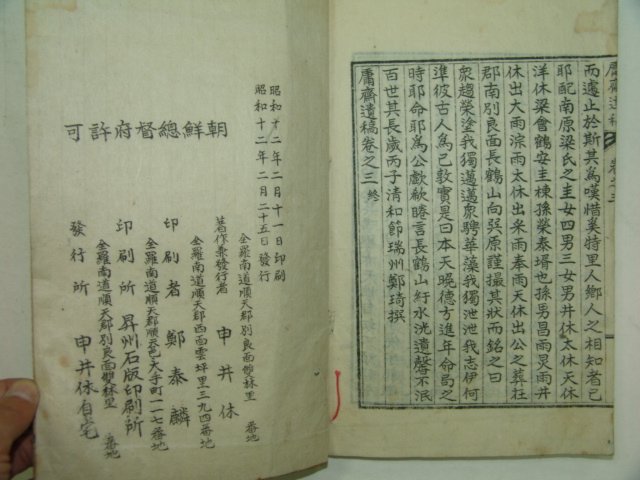 而遽止於斯其爲嘆惜奚特里人鄉人之相知者已
耶配南原梁氏之圭女四男三女男井休太休天休
洋休梁會鶴安圭棟孫榮泰壻也孫男昌雨炅雨井
休出大雨淙雨太休出來雨奉雨天休出公之葬在
郡南別良面長鶴山向癸原謹撮其狀而銘之曰
衆趨榮塗我獨邁邁衆騁華藻我獨泄泄我志伊何
準彼古人爲己敦實是曰本天晩德方進年命局之
時耶命耶爲公歔欷睠言長鶴山紆水洸遺馨不泯
百世其長歲丙子淸和節瑞州鄭琦撰
庸齋遺稿卷之三終
庸齋遺稿 卷之三
昭和十二年二月十一日印刷
昭和十二年二月二十五日發行
朝鮮總督府許可
全羅南道順天郡別良面雙林里 番地
著作兼發行者 申井休
全羅南道順天郡西面雲坪里三九四番地
印刷者 鄭泰麟
全羅南道順天郡順天邑大手町一一七番地
印刷所 昇州石版印刷所
全羅南道順天郡別良面雙林里 番地
發行所 申井休自宅